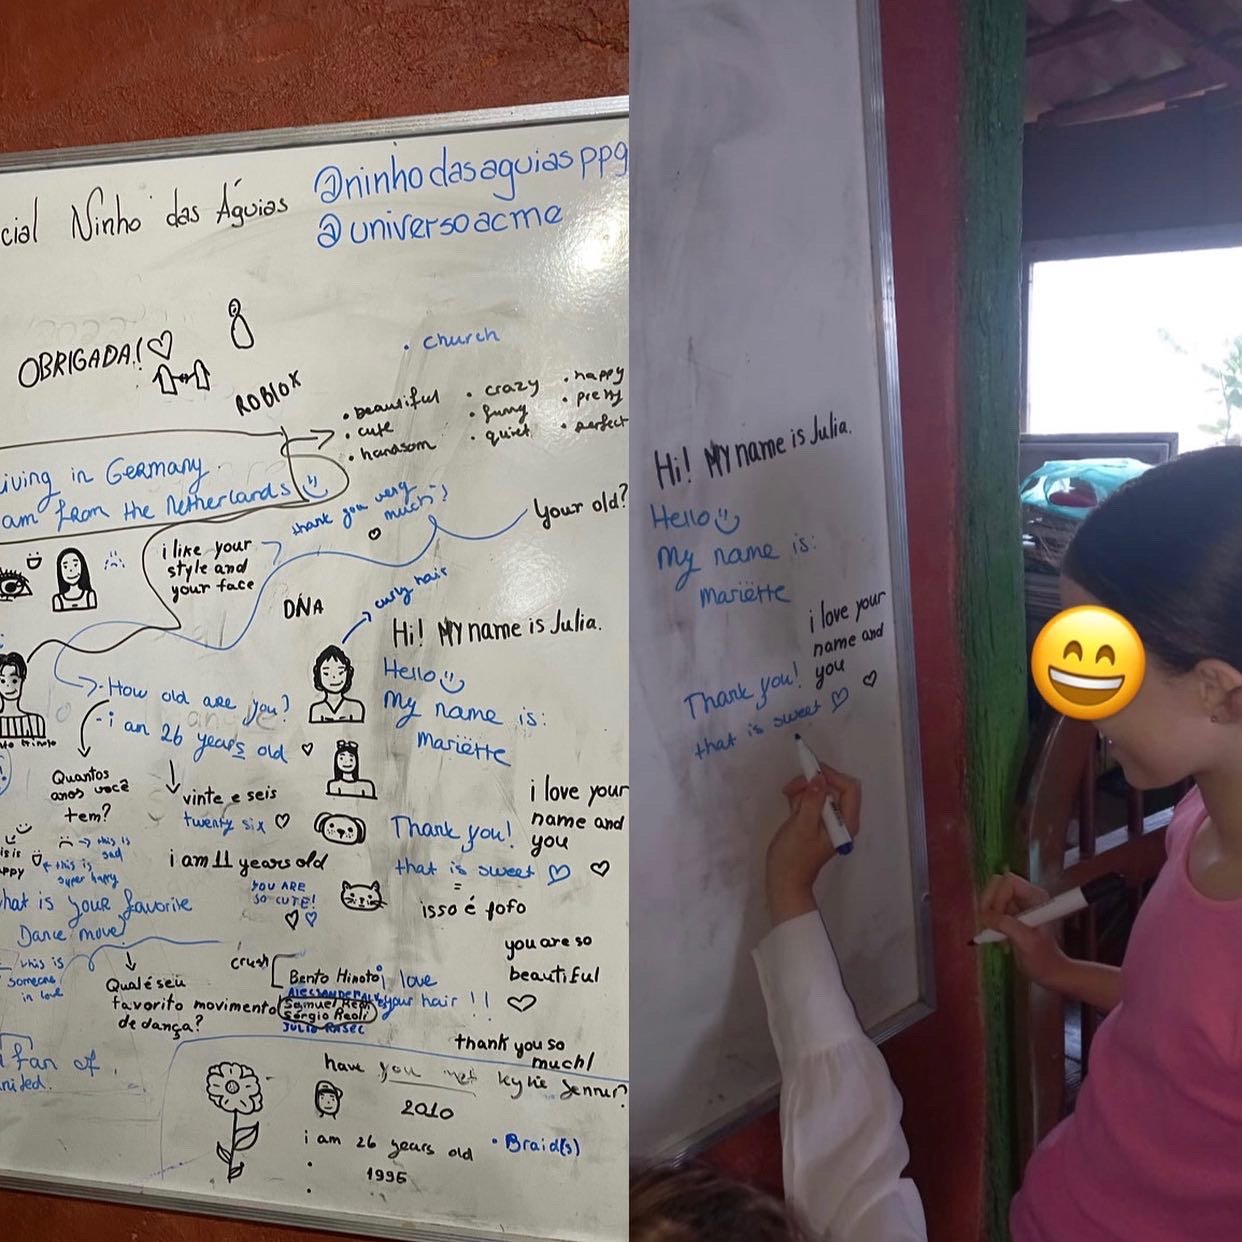 cial Ninho das Águias
@ninhodasaguiasppg
@universoacme
OBRIGADA!
ROBLOX
• church
• beautiful
• cute
• handsom
• crazy
• funny
• quiet
• happy
• pretty
• perfect
iving in Germany.
am from the Netherlands
thank you very
much :)
Your old?
i like your
style and
your face
DNA
curly hair
Hi! My name is Julia.
Hello
My name is:
Mariëtte
- How old are you?
- i an 26 years old
Quantos
anos você
tem?
vinte e seis
twenty six
i am 11 years old
YOU ARE
SO CUTE!
this is
sad
this is
super happy
hat is your favorite
Dance move
this is
someone
in love
Qual é seu
favorito movimento
de dança?
crush
Bento Hinoto
Samuel Reoli
Sérgio Reoli
JULIO RASEC
i love
your hair !!
i love your
name and
you
Thank you!
that is sweet
=
isso é fofo
you are so
beautiful
thank you so
much!
fan of
have you met Kylie Jenner?
2010
i am 26 years old
• Braid(s)
• 1996
•
Hi! My name is Julia.
Hello
My name is:
Mariëtte
i love your
name and
you
Thank you!
that is sweet